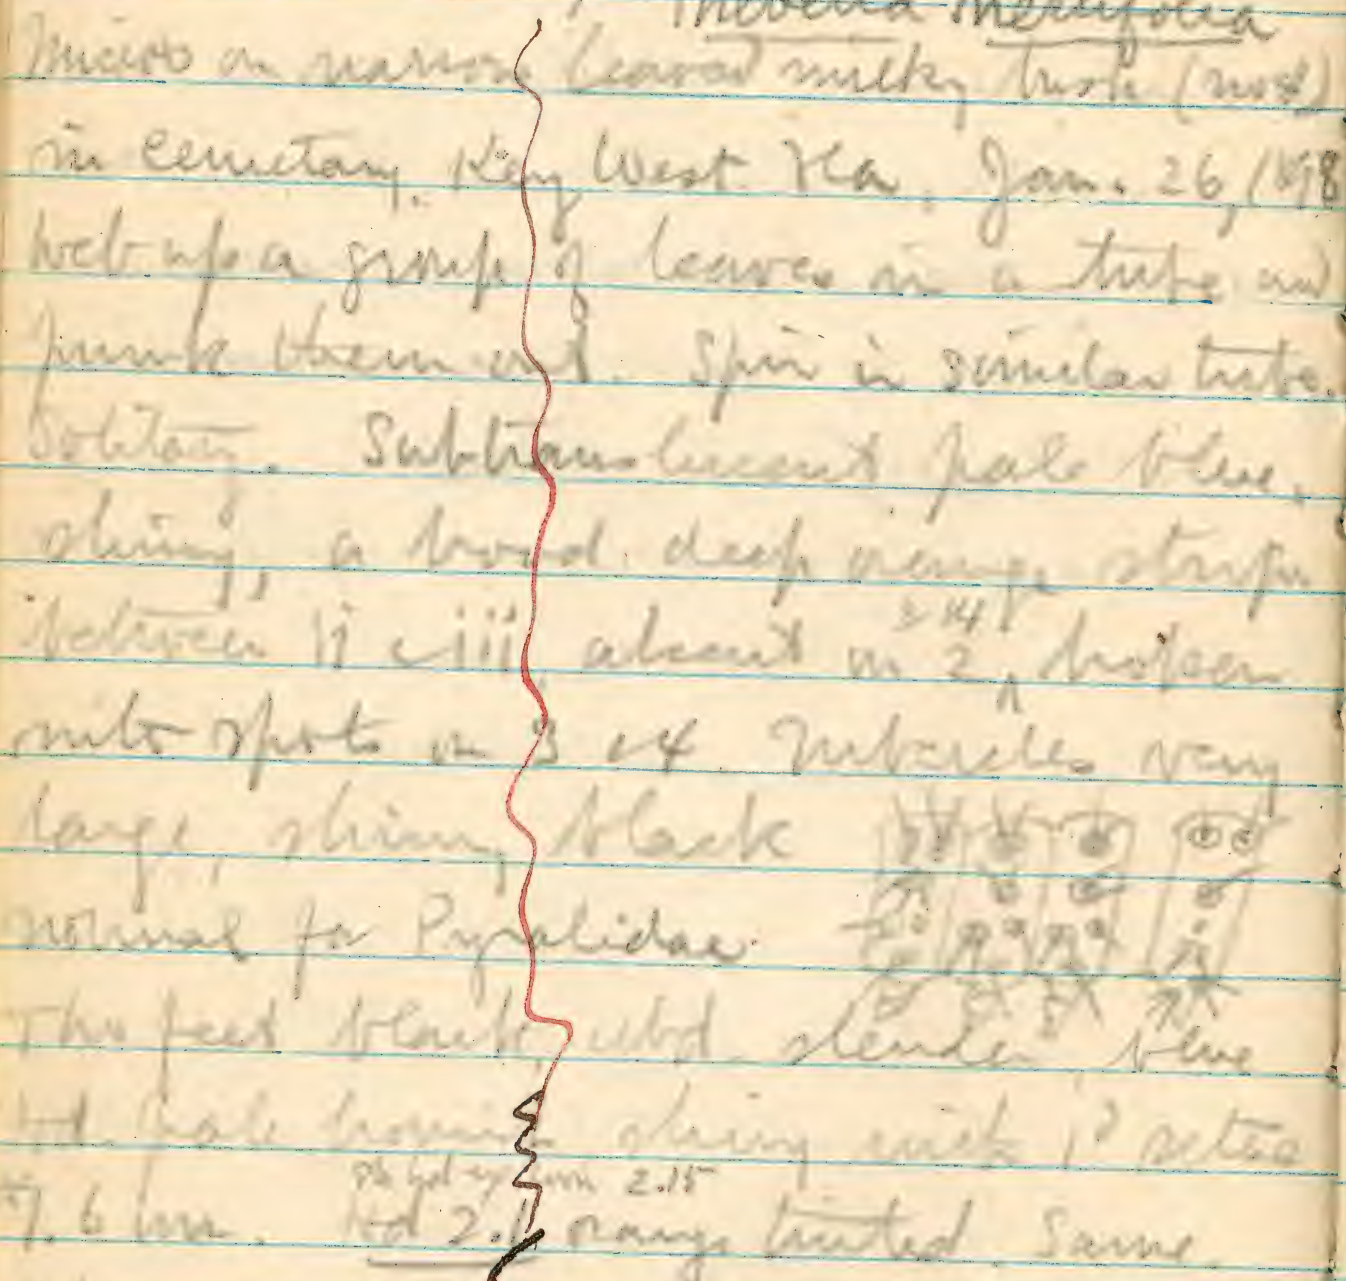 Thevetia neriifolia
Micro on narrow leaved milky bush (not)
in cemetary, Key West Fla, Jan. 26, 1898
web up a group of leaves in a tube and
them out. Spin in similar tube.
Solitary. Subtranslucent pale blue,
shiny, a broad deep orange stripe
between ii & iii absent on 2, broken
into spots on 3 & 4 Tubercles very
large, shiny black
normal for Pyralidae.
Tho feet black, abd. slender blue
Hd. pale brown shiny with 1° setae
2.15
Hd 2.1 orange tinted Same